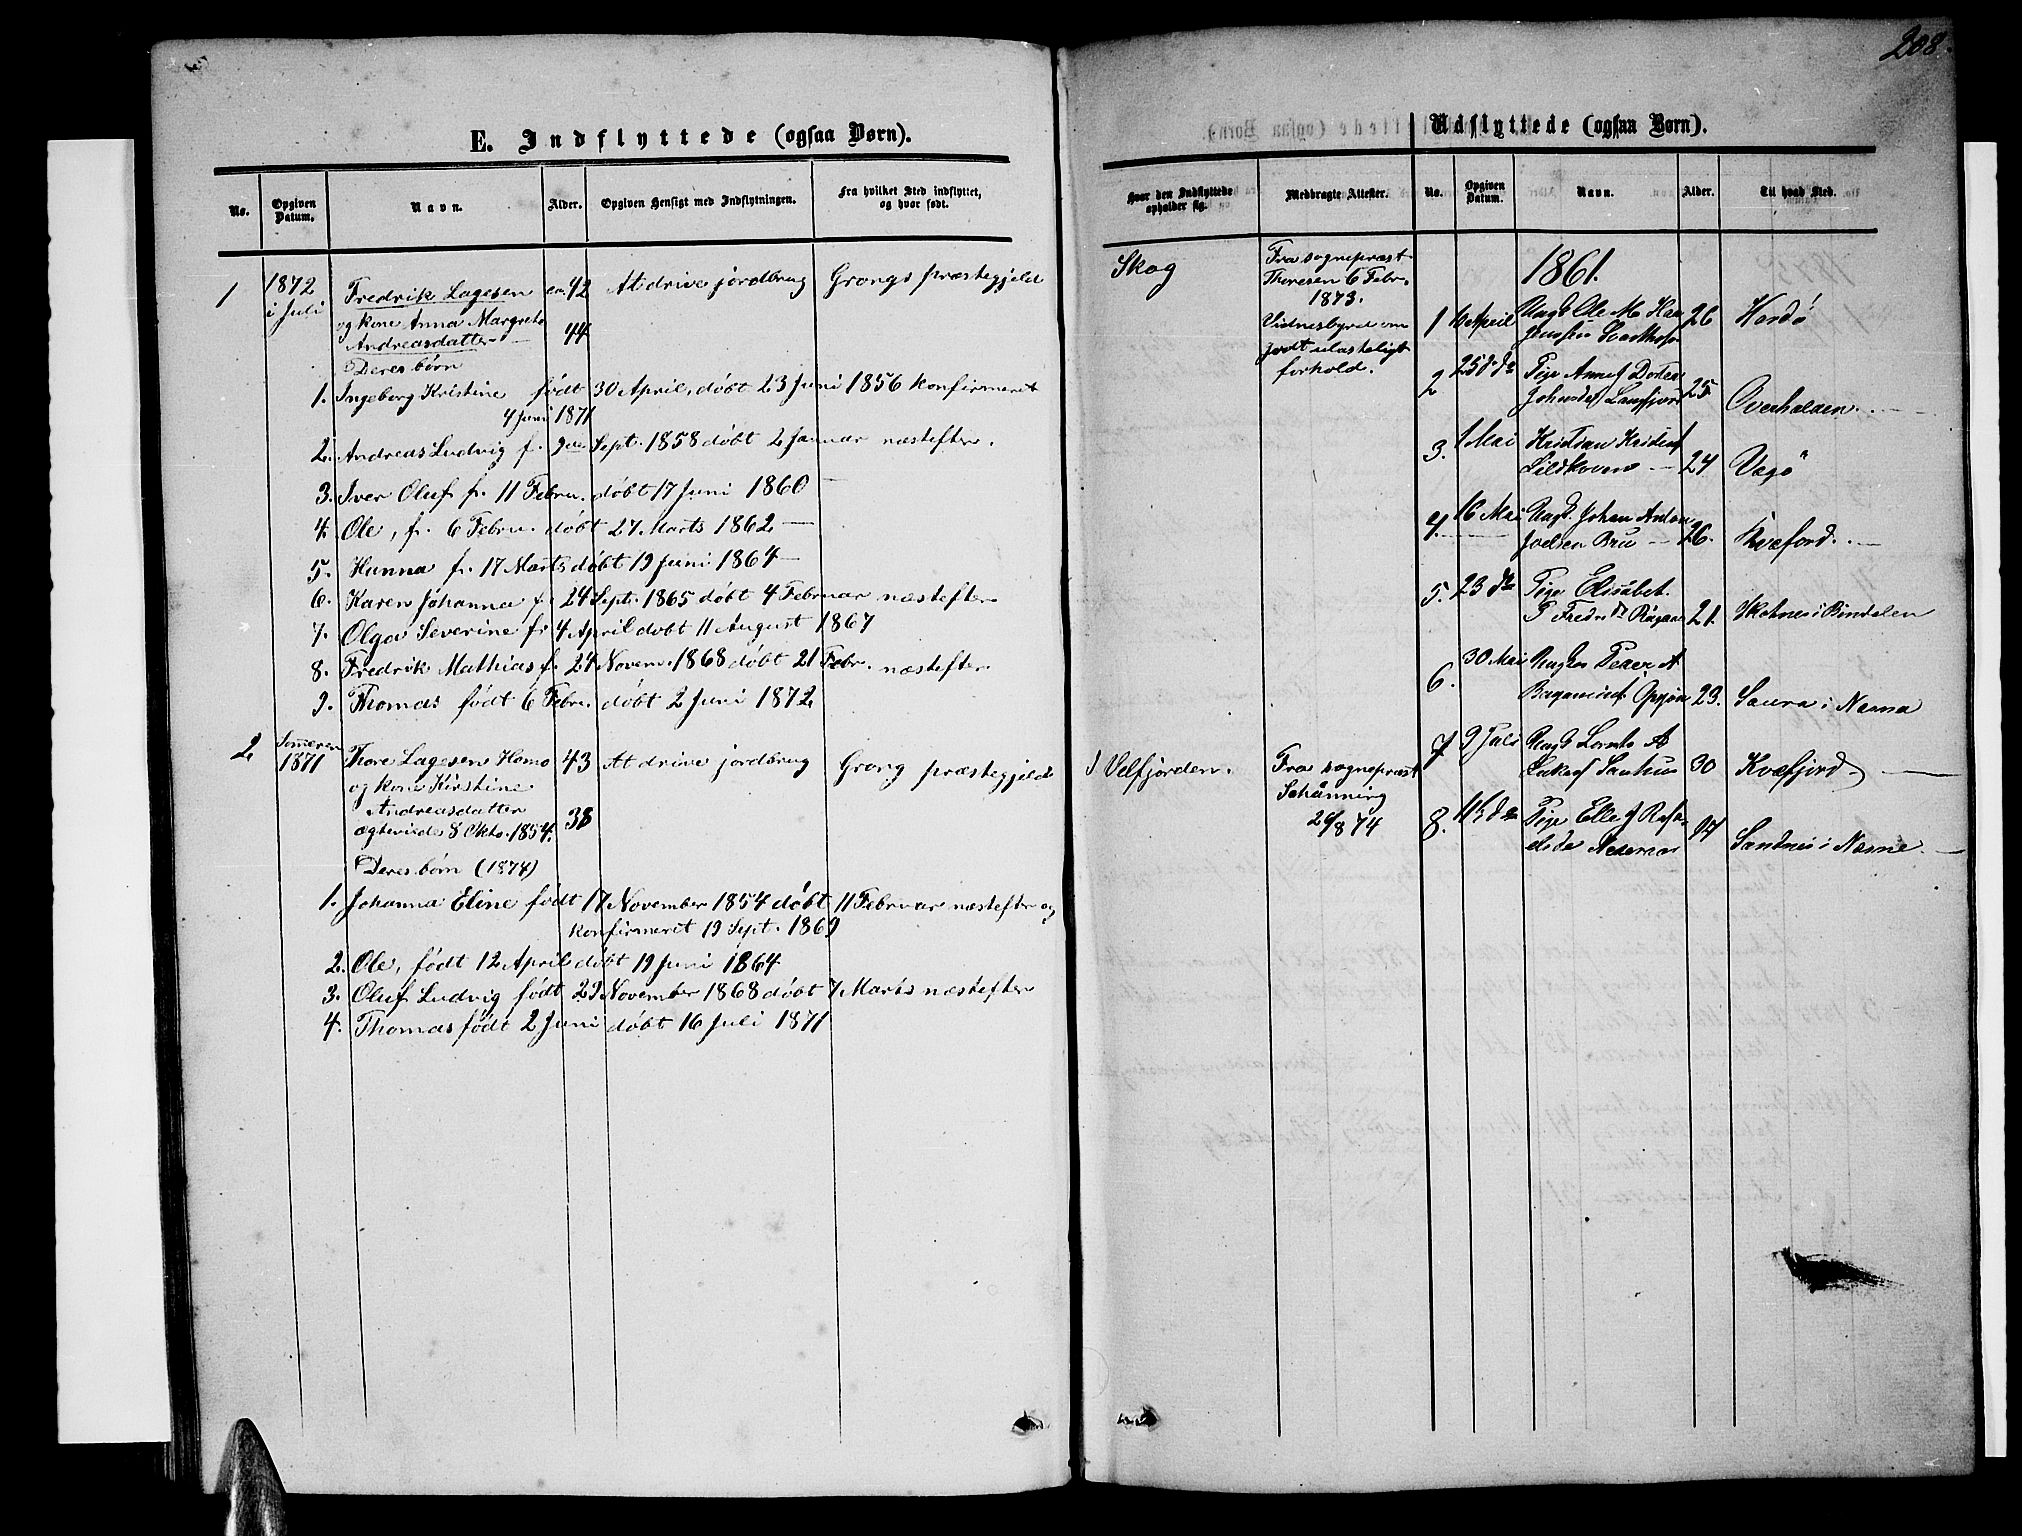 208.
E. Indflyttede (ogsaa Børn).
No.
Opgiven Datum.
Navn.
Alder.
Opgiven Hensigt med Indflytningen.
Fra hvilket Sted indflyttet, og hvor født.
1
1872 i Juli
Fredrik Lagesen ca. 42
At drive jordbrug
Grongs præstegjeld
og kone Anna Margrete
Andreasdatter 44
Deres børn
1. Ingeborg Kristine født 30 April, døbt 23 Juni 1856 konfirmeret
4 Juni 1871
2. Andreas Ludvig f. 9de Sept. 1858 døbt 2 Januar næstefter.
3. Iver Oluf f. 11 Febru. døbt 17 Juni 1860 —
4. Ole, f. 6 Febru. døbt 27 Marts 1862 —
5. Hanna f. 17 Marts døbt 19 Juni 1864 —
6. Karen Johanna f. 24 Sept. 1865 døbt 4 Februar næstefter
7. Olga Severine f. 4 April døbt 11 August 1867
8. Fredrik Mathias f. 24 Novem. 1868 døbt 21 Febr. næstefter.
9. Thomas født 6 Febru. døbt 2 Juni 1872
2
Sommeren 1871
Thore Lagesen Homo 43
At drive jordbrug
Grong præstegjeld
og kone Kirstine
Andreasdatter
ægteviede 8 Okto. 1854. 38
Deres børn (1874)
1. Johanna Eline født 17 November 1854 døbt 11 Februar næstefter og
konfirmeret 19 Sept. 1869
2. Ole, født 12 April døbt 19 Juni 1864
3. Oluf Ludvig født 29 November 1868 døbt 7 Marts næstefter
4. Thomas født 2 Juni døbt 16 Juli 1871
Hvor den Indflyttede opholder sig.
Medbragte Attester.
Skog
Fra sognepræst
Thoresen 6 Febr.
1873.
Vidnesbyrd om
godt ulasteligt
forhold.
I Velfjorden.
Fra sognepræst
Schanning
Udflyttede (ogsaa Børn).
No.
Opgiven Datum.
Navn.
Alder.
Til hvad Sted.
1861.
1 April Ungk. Ole M. 26
2 25 do Pige 25 Overhalden.
3. 1 Mai Kristian 24 Vegø
4. 16 Mai Ungk. Johan Anton
Joelsen Bru 26. Kvæfjord.
5. 23 do Pige Elisabet
21. i Bindalen
6. 30 Mai Peder A
23. Saura i Nesna
7 9 Juli Ungk
30 Kvæfjord
8. Pige
Sandnes i Nesne.